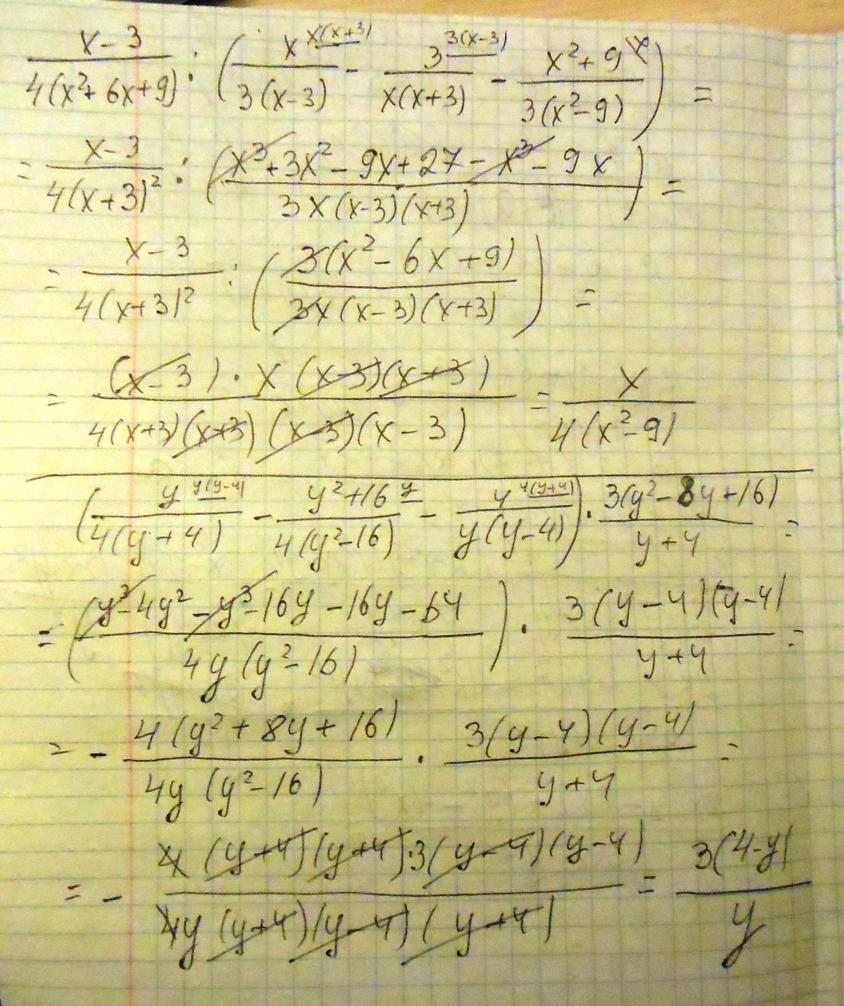 (x-3)/(4(x²+6x+9)) : (x^{x(x+3)}/(3(x-3)) - 3^{3(x-3)}/(x(x+3)) - (x²+9^{x})/(3(x²-9))) =
= (x-3)/(4(x+3)²) : ((x³+3x²-9x+27-x³-9x)/(3x(x-3)(x+3))) =
= (x-3)/(4(x+3)²) : (3(x²-6x+9)/(3x(x-3)(x+3))) =
= ((x-3)·x(x-3)(x+3))/(4(x+3)(x+3)(x-3)(x-3)) = x/(4(x²-9))
(y^{y(y-4)}/(4(y+4)) - (y²+16^{y})/(4(y²-16)) - 4^{4(y+4)}/(y(y-4))) · 3(y²-8y+16)/(y+4) =
= ((y³-4y²-y³-16y-16y-64)/(4y(y²-16))) · 3(y-4)(y-4)/(y+4) =
= - 4(y²+8y+16)/(4y(y²-16)) · 3(y-4)(y-4)/(y+4) =
= - (4(y+4)(y+4)·3(y-4)(y-4))/(4y(y+4)(y-4)(y+4)) = 3(4-y)/y